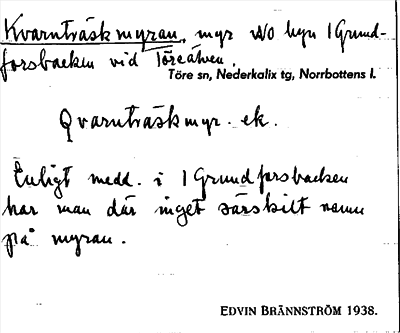 Kvarnträskmyran, myr NO byn 1 Grund-
forsbacken vid Töreälven.
Töre sn, Nederkalix tg, Norrbottens l.
Qvarnträskmyr. ek.
Enligt medd. i 1 Grundforsbacken
har man där inget särskilt namn
på myran.
EDVIN BRÄNNSTRÖM 1938.